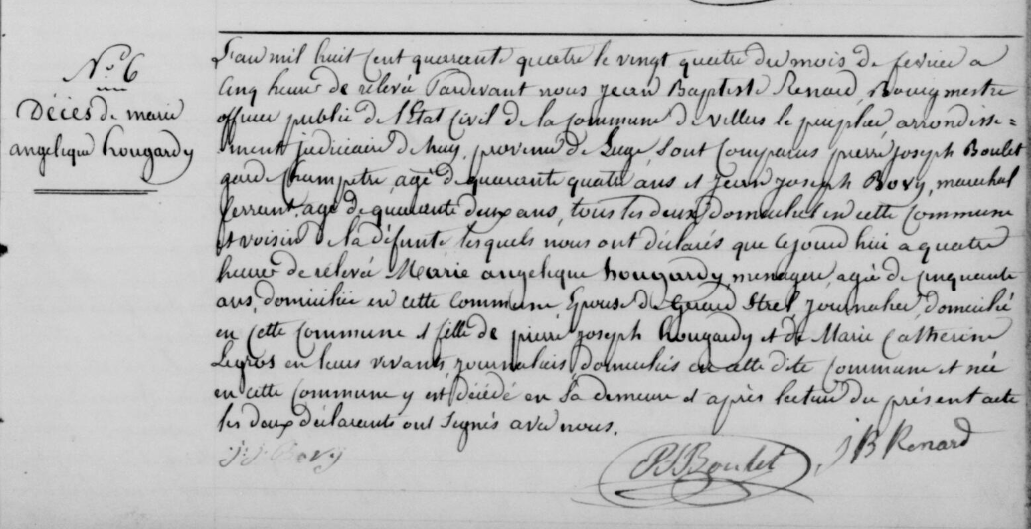 No 6
Décès de marie
angelique hougardy
L'an mil huit Cent quarante quatre le vingt quatre du mois de fevrier a
Cinq heures de relevée Pardevant nous Jean Baptiste Renard, Bourgmestre
officier publice de l'Etat Civil de la Commune de villers le peuplier, arrondisse=
=ment judiciaire de huy, province de Liege, Sont Comparus pierre Joseph Boulet
garde Champetre, agé de quarante quatre ans et Jean Joseph Bovy, marechal
ferrant, agé de quarante deux ans, tous les deux domiciliés en cette Commune
et voisin de la défunte lesquels nous ont déclarés que cejourd'hui a quatre
heures de relevée Marie angelique hougardy, menagere, agée de cinquante
ans, domiciliée en cette Commune, Epouse de Gerard Strel, Journalier, domicilié
en Cette Commune et fille de pierre Joseph hougardy et de Marie Catherine
Legros en leurs vivants, journaliers domiciliés en cette dite Commune et née
en cette Commune y est décédé en Sa demeure et après lecture du présent acte
les deux déclarants ont Signés avec nous.
J. J. Bovy
PJ Boulet
J B Renard